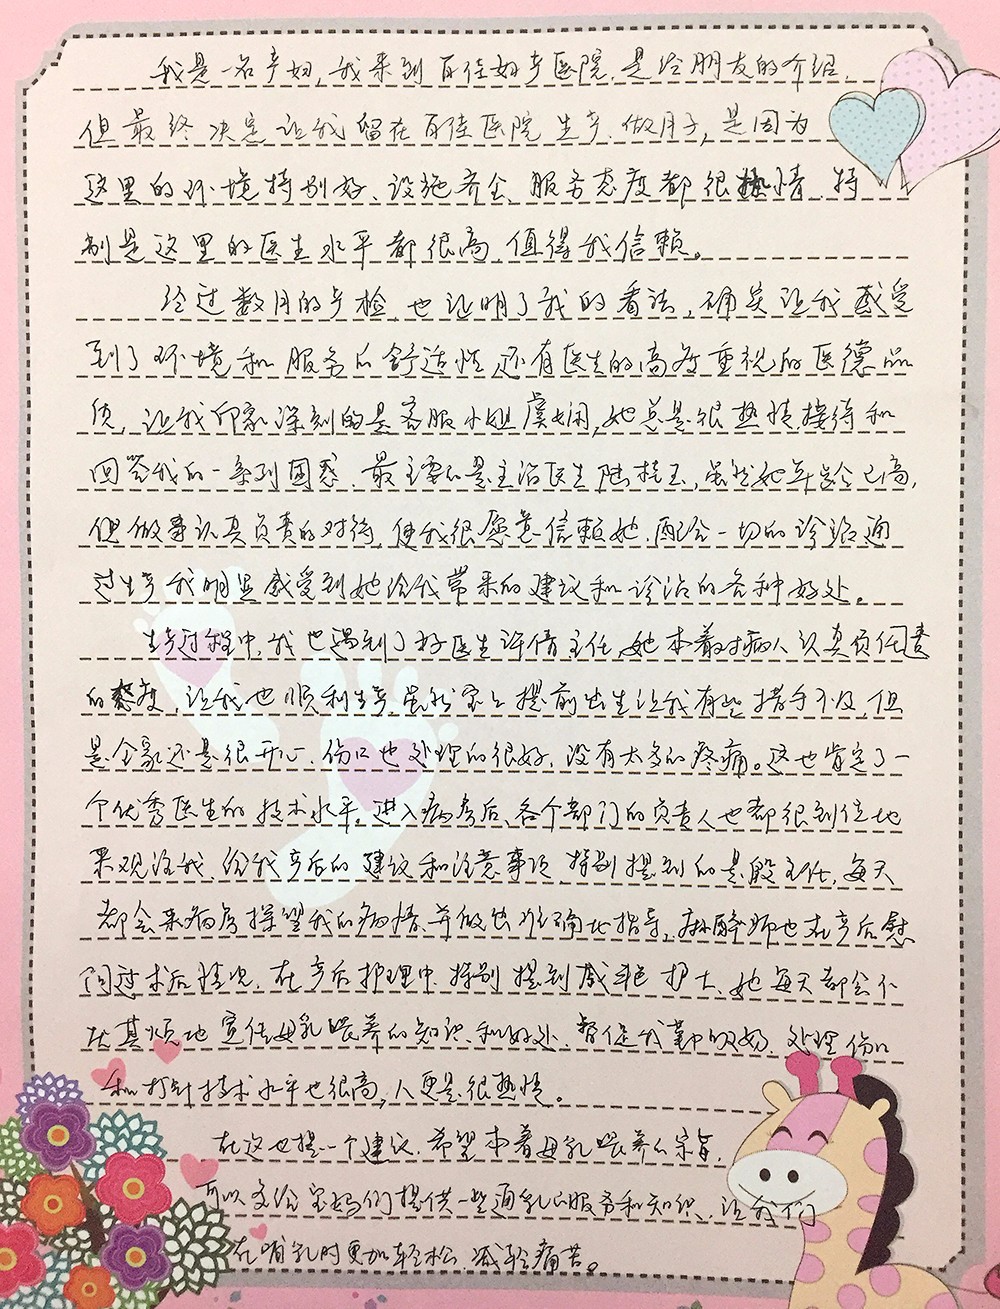 我是一名产妇,我来到百佳妇产医院,是经朋友的介绍,
但最终决定让我留在百佳医院生产、做月子,是因为
这里的环境特别好、设施齐全、服务态度都很热情,特
别是这里的医生水平都很高,值得我信赖。
经过数月的产检,也证明了我的看法,确实让我感受
到了环境和服务的舒适性,还有医生的高度重视的医德品
质,让我印象深刻的是客服小姐虞娴,她总是很热情接待和
回答我的一系列困惑,最主要的是主治医生陆桂玉,虽然她年龄已高,
但做事认真负责的对待,使我很愿意信赖她,配合一切的诊治,通
过生产我明显感受到她给我带来的建议和诊治的各种好处。
生产过程中,我也遇到了好医生许倩主任,她本着对病人认真负任责
的态度,让我也顺利生产,虽然宝宝提前出生让我有些措手不及,但
是全家还是很开心,伤口也处理的很好,没有太多的疼痛。这也肯定了一
个优秀医生的技术水平,进入病房后、各个部门的负责人也都很到位地
来观注我、给我产后的建议和注意事项,特别提到的是殷主任,每天
都会来病房探望我的病情,并做出准确地指导,麻醉师也在产后慰
问过术后情况,在产后护理中,特别提到戚艳护士、她每天都会不
厌其烦地宣传母乳喂养的知识和好处,督促我勤吸奶、处理伤口
和打针技术水平也很高,人更是很热情。
在这也提一个建议,希望本着母乳喂养的宗旨,
可以多给宝妈们提供一些通乳的服务和知识,让我们
在哺乳时更加轻松,减轻痛苦。